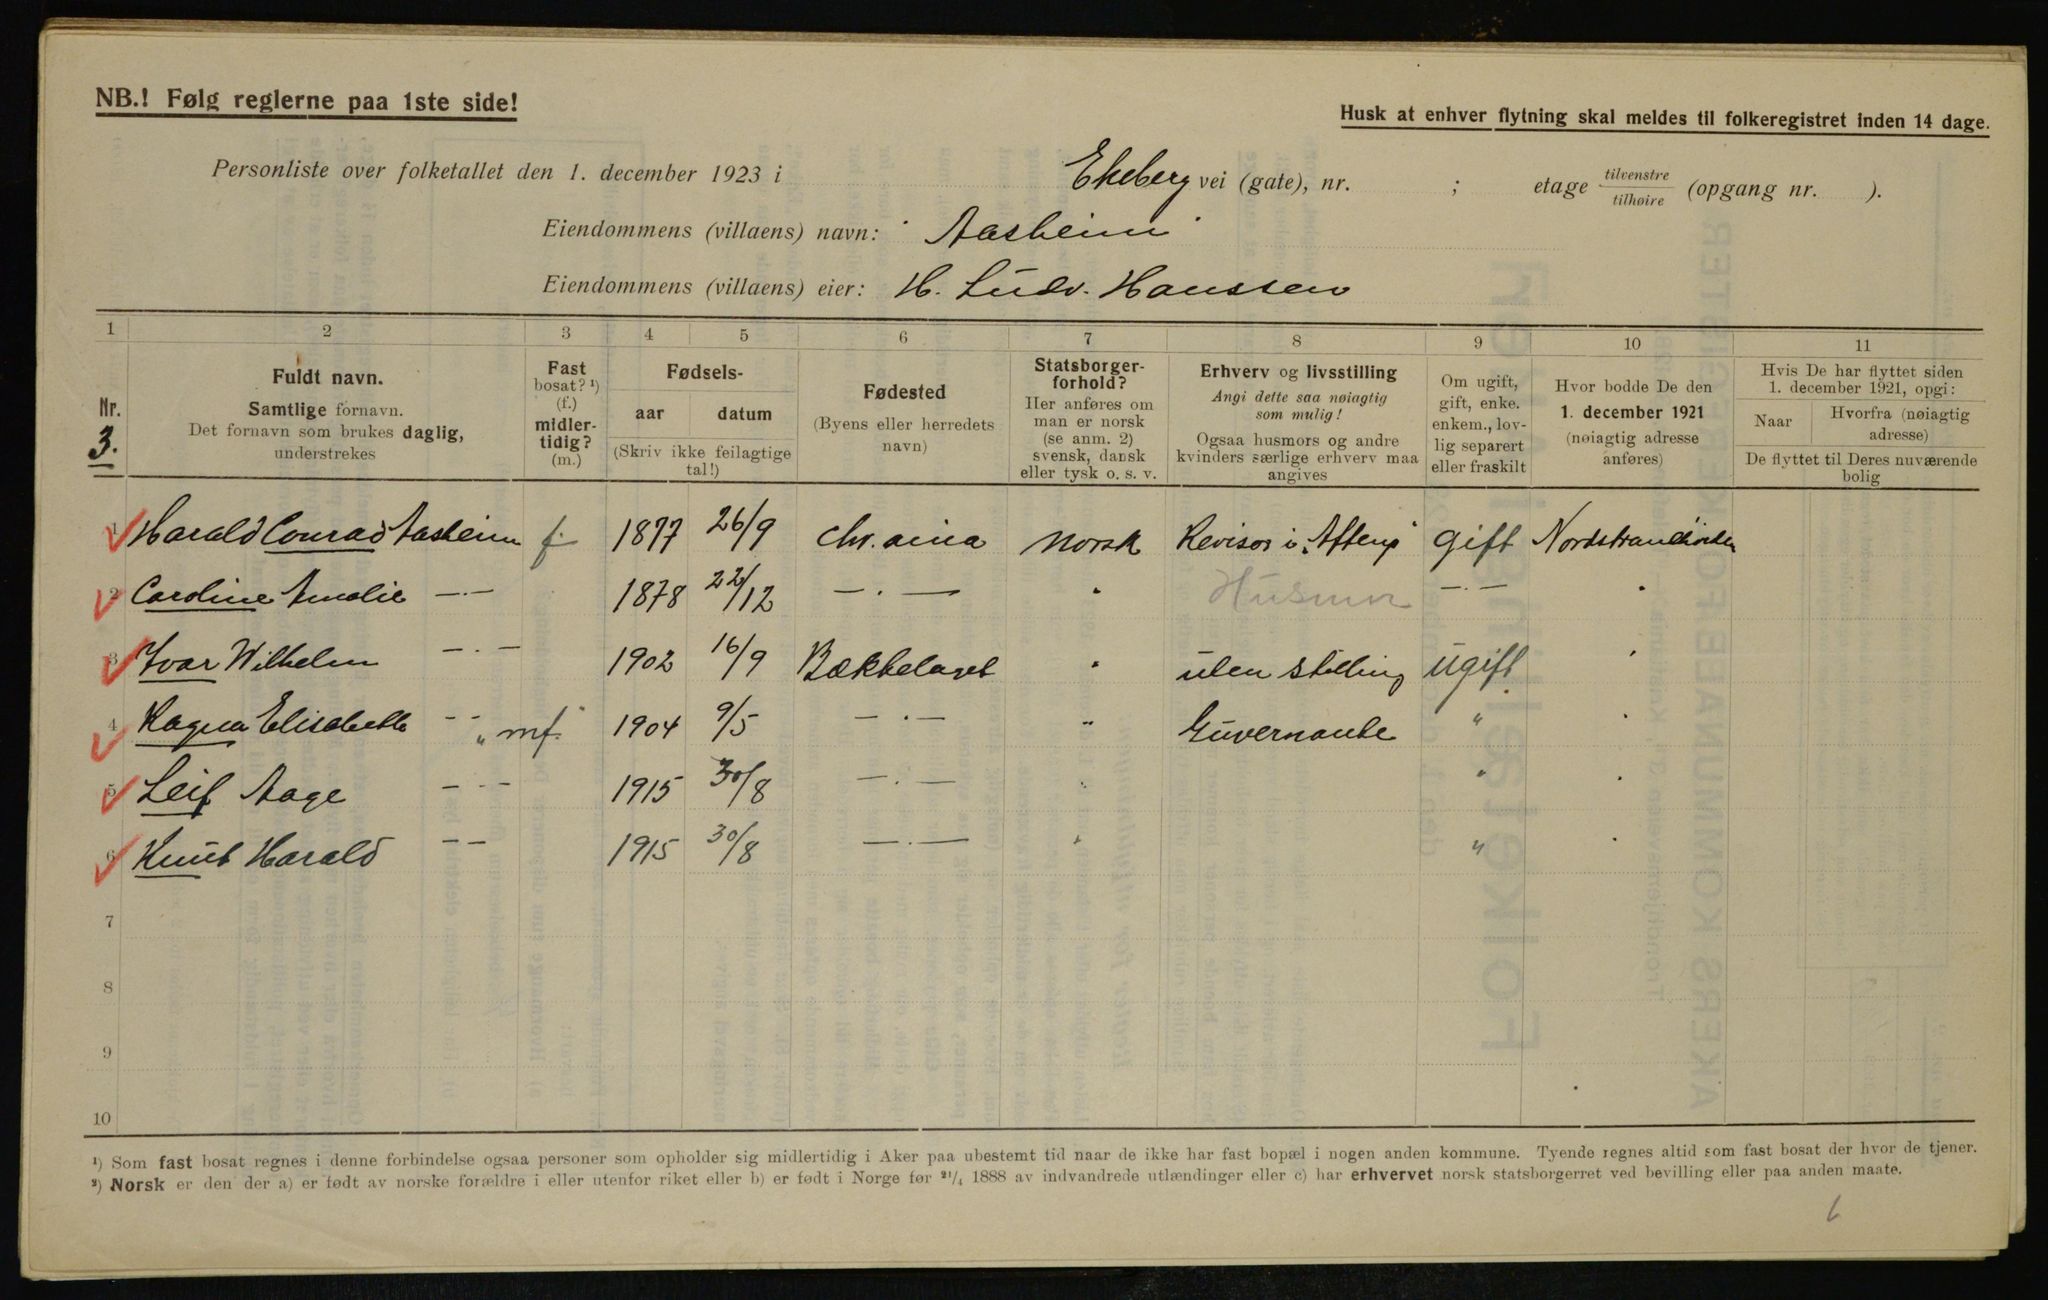 NB.! Følg reglerne paa 1ste side!
Husk at enhver flytning skal meldes til folkeregistret inden 14 dage.
Personliste over folketallet den 1. december 1923 i Ekeberg vei (gate), nr. ; etage tilvenstre tilhøire (opgang nr. ).
Eiendommens (villaens) navn: Aasheim
Eiendommens (villaens) eier: H. Ludv. Hanssen
1 2 3 4 5 6 7 8 9 10 11
Nr.
3.
Fuldt navn.
Samtlige fornavn.
Det fornavn som brukes daglig,
understrekes
Fast
bosat? ¹)
(f.)
midler-
tidig?
(m.)
Fødsels-
aar datum
(Skriv ikke feilagtige
tal!)
Fødested
(Byens eller herredets
navn)
Statsborger-
forhold?
Her anføres om
man er norsk
(se anm. 2)
svensk, dansk
eller tysk o. s. v.
Erhverv og livsstilling
Angi dette saa nøiagtig
som mulig!
Ogsaa husmors og andre
kvinders særlige erhverv maa
angives
Om ugift,
gift, enke.
enkem., lov-
lig separert
eller fraskilt
Hvor bodde De den
1. december 1921
(nøiagtig adresse
anføres)
Hvis De har flyttet siden
1. december 1921, opgi:
Naar Hvorfra (nøiagtig
adresse)
De flyttet til Deres nuværende
bolig
1 Harald Conrad Aasheim f. 1877 26/9 Chr.ania Norsk Revisor i "Aftenp" gift
2 Caroline Amalie —.— 1878 22/12 —.— " Husmor —.— "
3 Ivar Wilhelm —.— 1902 16/9 Bækkelaget " uten stilling ugift "
4 Ragna Elisabeth -- " mf. 1904 9/5 —.— " Guvernante " "
5 Leif Aage —.— 1915 30/8 —.— " " "
6 Knut Harald —— 1915 30/8 —.— " " "
7
8
9
10
¹) Som fast bosat regnes i denne forbindelse ogsaa personer som opholder sig midlertidig i Aker paa ubestemt tid naar de ikke har fast bopæl i nogen anden kommune. Tyende regnes altid som fast bosat der hvor de tjener.
²) Norsk er den der a) er født av norske forældre i eller utenfor riket eller b) er født i Norge før ²¹/₄ 1888 av indvandrede utlændinger eller c) har erhvervet norsk statsborgerret ved bevilling eller paa anden maate.